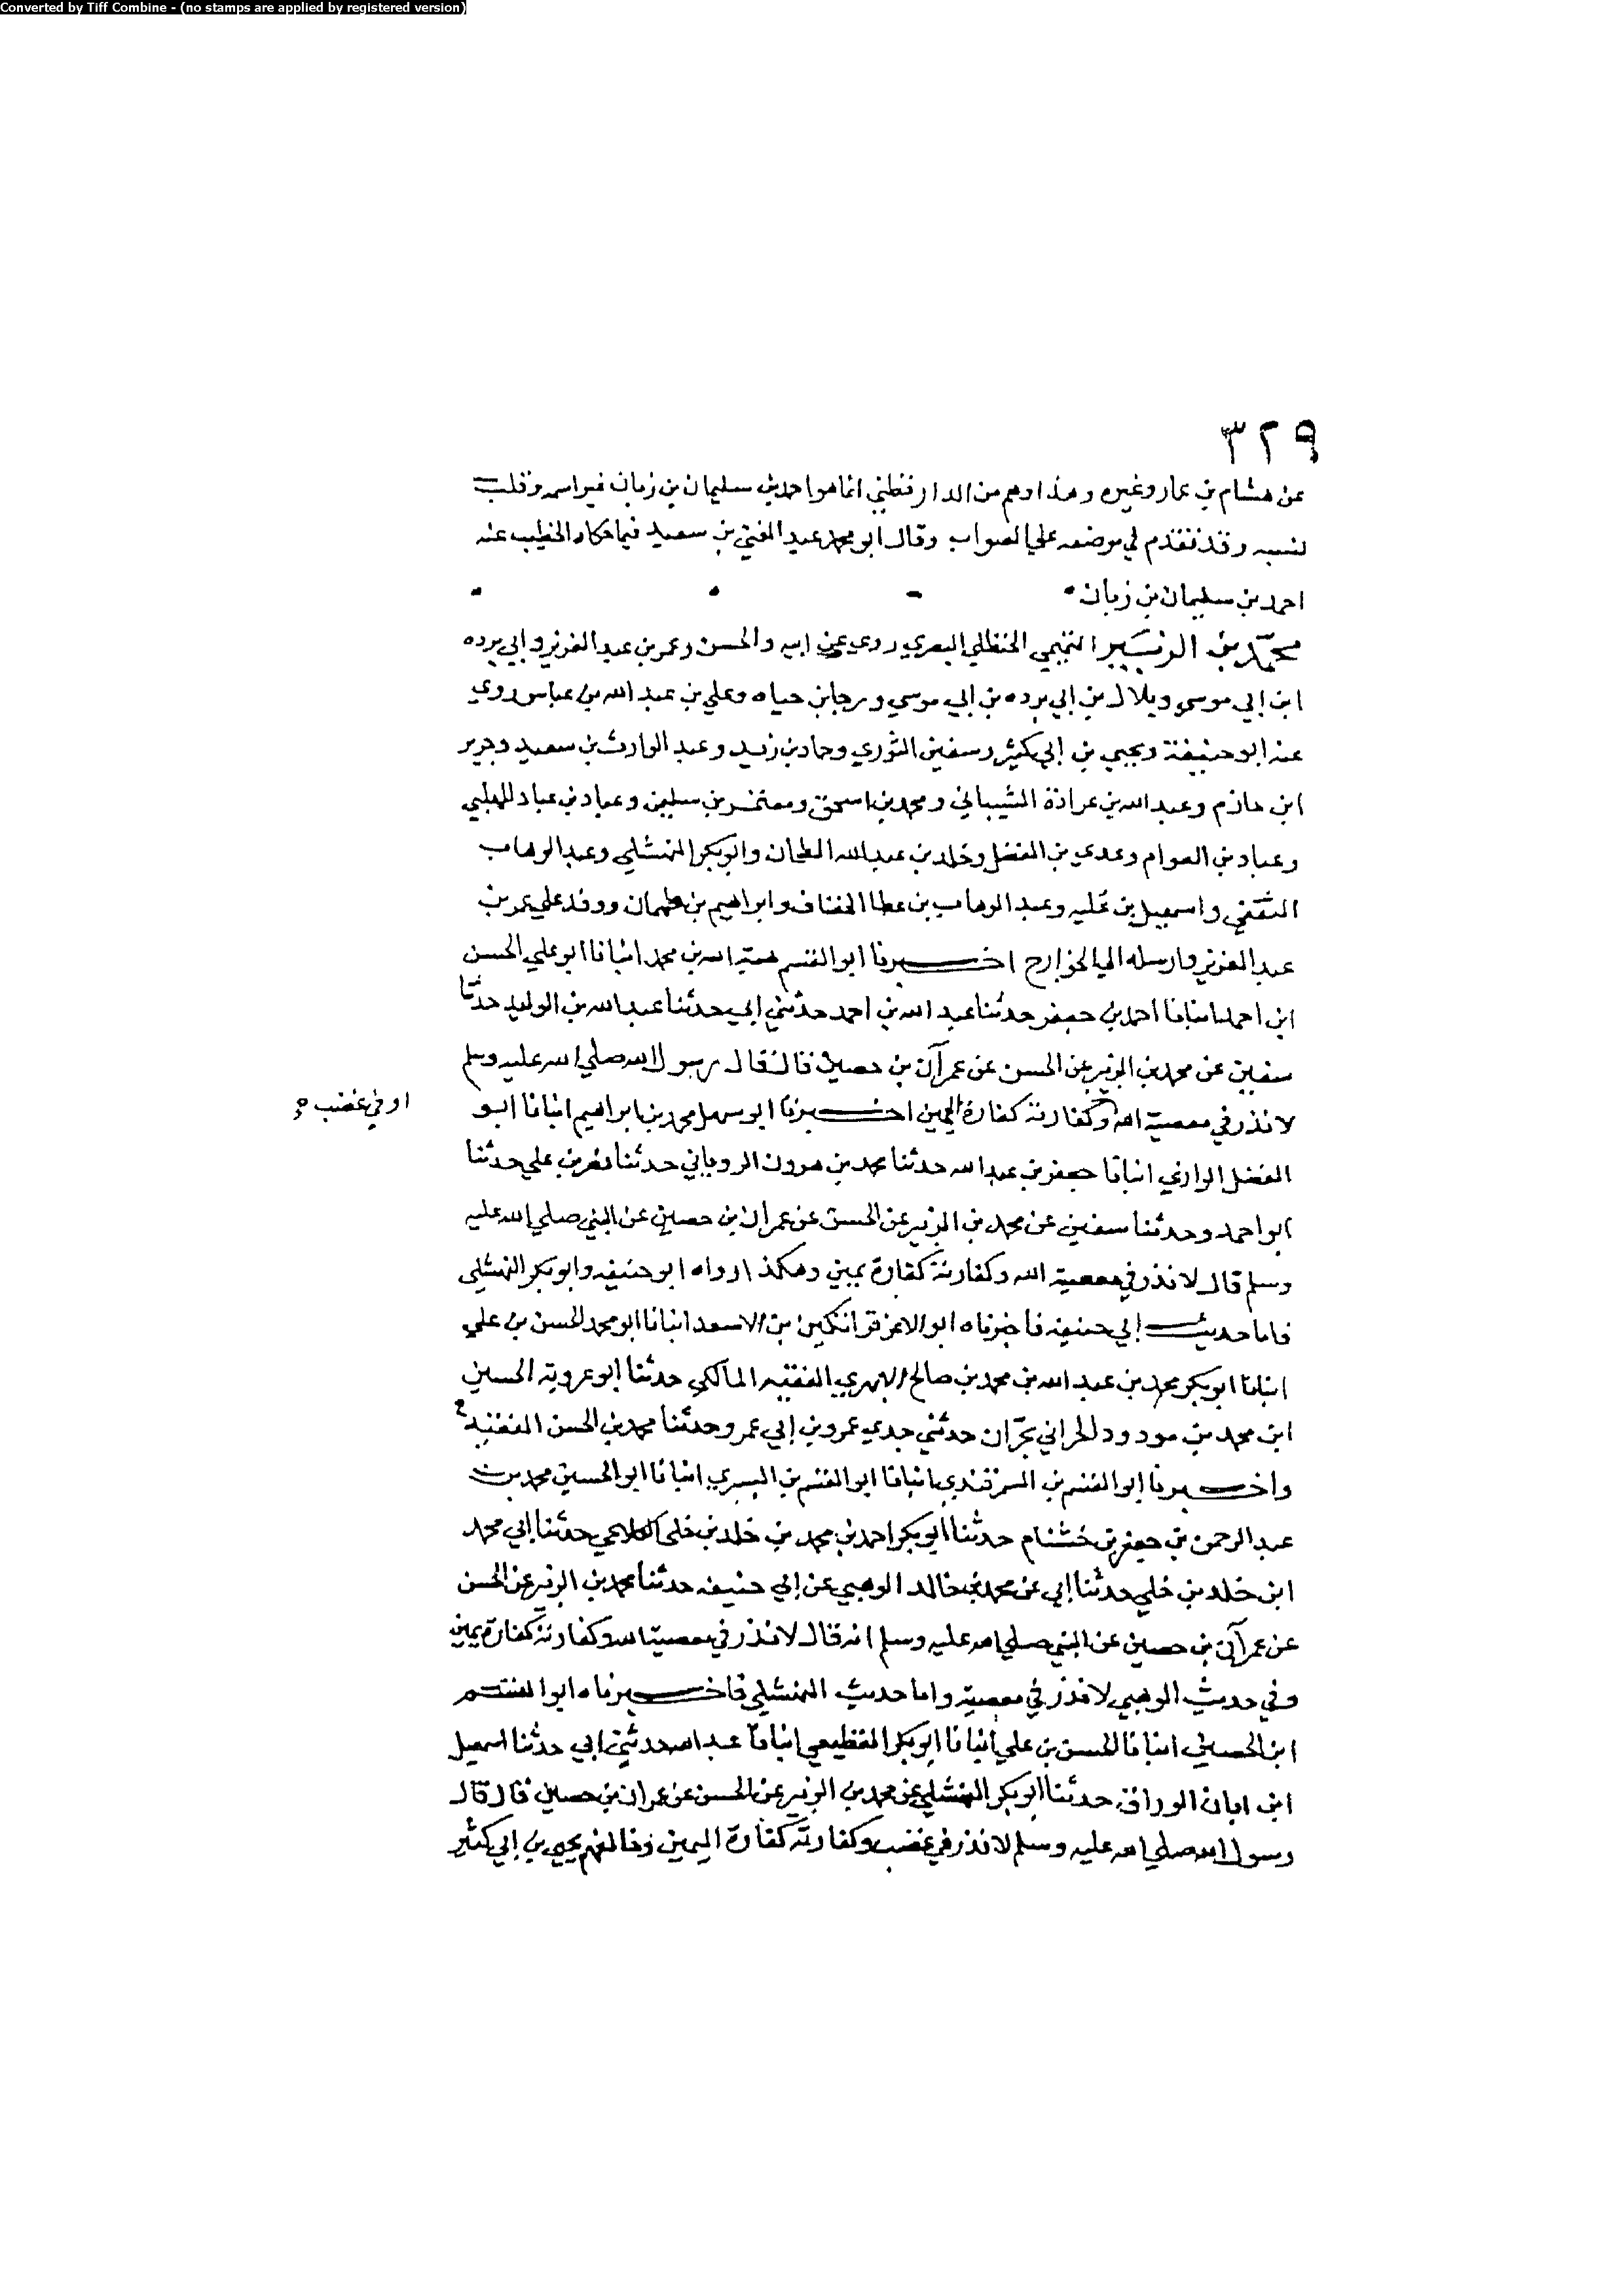 Converted by Tiff Combine - (no stamps are applied by registered version)
٣٢٩
عن هشام بن عمار وغيره وهذا وهم من الدارقطني انما هو احمد بن سليمان بن زبان غير اسمه وقلب
نسبه وقد تقدم في موضعه علي الصواب وقال ابو محمد عبد الغني بن سعيد فيما حكاه الخطيب عنه
احمد بن سليمان بن زبان
محمد بن الزبير التميمي الحنظلي البصري روي عن ابيه والحسن وعمر بن عبد العزيز وابي برده
ابن ابي موسي وبلال بن ابي برده بن ابي موسي ورجا بن حياه وعلي بن عبد الله بن عباس روي
عنه ابو حنيفة ويحيي بن ابي كثير وسفين الثوري وحماد بن زيد وعبد الوارث بن سعيد وجرير
ابن حازم وعبد الله بن عرادة الشيباني ومحمد بن اسحق ومعتمر بن سليمن وعباد بن عباد المهلبي
وعباد بن العوام وعدي بن الفضل وخلد بن عبد الله الطحان وابو بكر النهشلي وعبد الوهاب
الثقفي واسمعيل بن علية وعبد الوهاب بن عطا الخفاف وابراهيم بن طهمان ووفد علي عمر بن
عبد العزيز وارسله الي الخوارج اخبرنا ابو القسم هبة الله بن محمد انبانا ابو علي الحسن
ابن احمد انبانا احمد بن جعفر حدثنا عبد الله بن احمد حدثني ابي حدثنا عبد الله بن الوليد حدثنا
سفين عن محمد بن الزبير عن الحسن عن عمران بن حصين قال قال رسول الله صلي الله عليه وسلم
لا نذر في معصية الله وكفارته كفارة اليمين اخبرنا ابو سهل محمد بن ابراهيم انبانا ابو
او في غضب
الفضل الرازي انبانا جعفر بن عبد الله حدثنا محمد بن هرون الروياني حدثنا نصر بن علي حدثنا
ابو احمد وحدثنا سفين عن محمد بن الزبير عن الحسن عن عمران بن حصين عن النبي صلي الله عليه
وسلم قال لا نذر في معصية الله وكفارته كفارة يمين وهكذا رواه ابو حنيفه وابو بكر النهشلي
فاما حديث ابي حنيفه فاخبرناه ابو الاعز قراتكين بن الاسعد انبانا ابو محمد الحسن بن علي
انبانا ابو بكر محمد بن عبد الله بن محمد بن صالح الابهري الفقيه المالكي حدثنا ابو عروبة الحسين
ابن محمد بن مودود الحراني بحران حدثني جدي عمرو بن ابي عمرو حدثنا محمد بن الحسن الفقيه ح
واخبرنا ابو القسم بن السمرقندي انبانا ابو القسم بن البسري انبانا ابو الحسين محمد بن
عبد الرحمن بن جعفر بن خشنام حدثنا ابو بكر احمد بن محمد بن خلد بن خلي الكلاعي حدثنا ابي محمد
ابن خلد بن خلي حدثنا ابي عن محمد بن خالد الوهبي عن ابي حنيفه حدثنا محمد بن الزبير عن الحسن
عن عمران بن حصين عن النبي صلي الله عليه وسلم انه قال لا نذر في معصية الله وكفارته كفارة يمين
وفي حديث الوهبي لا نذر في معصية واما حديث النهشلي فاخبرناه ابو القسم
ابن الحصين انبانا الحسن بن علي انبانا ابو بكر القطيعي انبانا عبد الله حدثني ابي حدثنا اسمعيل
ابن ابان الوراق حدثنا ابو بكر النهشلي عن محمد بن الزبير عن الحسن عن عمران بن حصين قال قال
رسول الله صلي الله عليه وسلم لا نذر في غضب وكفارته كفارة اليمين وخالفهم يحيي بن ابي كثير